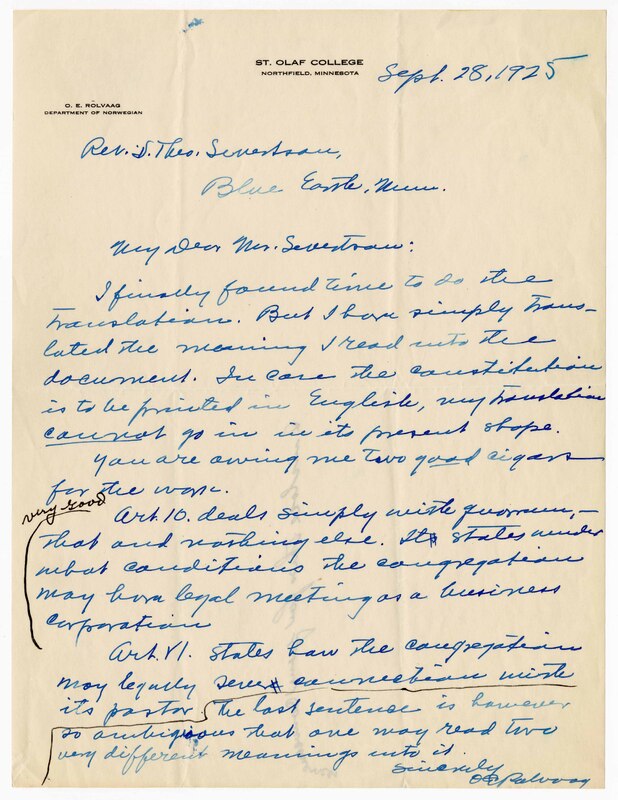 ST. OLAF COLLEGE
NORTHFIELD, MINNESOTA
Sept. 28, 1925
O. E. ROLVAAG
DEPARTMENT OF NORWEGIAN
Rev. D. Theo. Severtson,
Blue Earth, Minn.
My Dear Mr. Severtson:
I finally found time to do the
translation. But I have simply trans-
lated the meaning I read into the
document. In case the constitution
is to be printed in English, my translation
cannot go in in its present shape.
You are owing me two good cigars
for the work.
very good
Art. 10. deals simply with quorum,-
that and nothing else. It states under
what conditions the congregation
may have legal meeting as a business
corporation
Art. VI. states how the congregation
may legally sever connection with
its pastor. The last sentence is however
so ambigious that one may read two
very different meanings into it.
Sincerely
OE Rolvaag